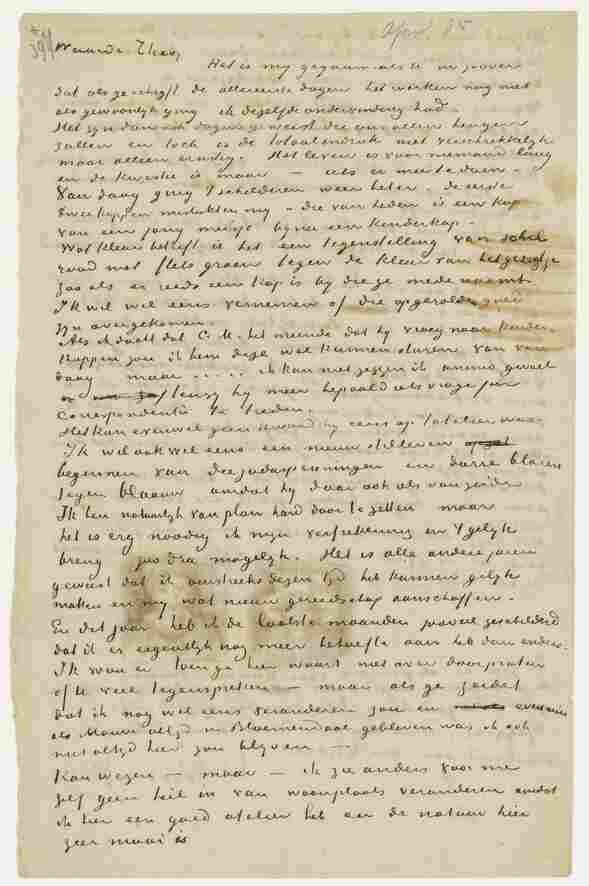 April 85
Waarde Theo,
Het is my gegaan als U in zoover
dat als ge schryft de allereerste dagen het werken nog niet
als gewoonlyk ging ik dezelfde ondervinding had.
Het zyn dan ook dagen geweest die ons allen heugen
zullen en toch is de totaalindruk niet verschrikkelyk
maar alleen ernstig. Het leven is voor niemand lang
en de kwestie is maar – iets er mee te doen.
Van daag ging 't schilderen weer beter. de eerste
twee koppen mislukten my – die van heden is een kop
van een jong meisje byna een kinderkop.
Wat kleur betreft is het een tegenstelling van schel
rood met flets groen tegen de kleur van het gezigtje
zoo als er reeds een kop is by die ge mede naamt.
Ik wil wel eens vernemen of die opgerolde goed
zyn overgekomen.
Als ik dacht dat C.M. het meende dat hy vroeg naar kinder
koppen zou ik hem deze wel kunnen sturen van van
daag maar ..... ik kan niet zeggen ik animo gevoel
tenzy hy meer bepaald iets vrage in
correspondentie te treden.
Het kan evenwel geen kwaad hy eens op 't atelier was.
Ik wil ook wel eens een nieuw stilleven opzet
beginnen van die judaspenningen en dorre blaren
tegen blaauw omdat hy daar ook iets van zeide
Ik ben natuurlyk van plan hard door te zetten maar
het is erg noodig ik myn verfrekening in 't gelyk
breng zoodra mogelyk. Het is alle andere jaren
geweest dat ik omstreeks dezen tyd het kunnen gelyk
maken en my wat nieuw gereedschap aanschaffen.
En dit jaar heb ik de laatste maanden zooveel geschilderd
dat ik er eigentlyk nog meer behoefte aan heb dan anders.
Ik wou er tydens ge hier waart niet over doorpraten
of te veel tegenspreken – maar als ge zeidet
dat ik nog wel eens veranderen zou en evenmin
als Mauve altyd in Bloemendaal gebleven was ik ook
niet altyd hier zou blyven –
Kan wezen – maar – ik zie anders voor me
zelf geen heil in van woonplaats veranderen omdat
ik hier een goed atelier heb en de natuur hier
zeer mooi is